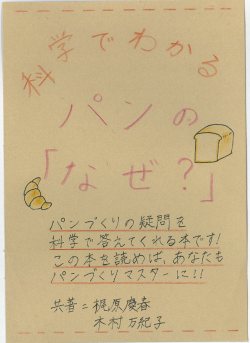 科学でわかる
パンの
「なぜ?」
パンづくりの疑問を
科学で答えてくれる本です!
この本を読めば、あなたも
パンづくりマスターに!!
共著=梶原慶春
木村万紀子